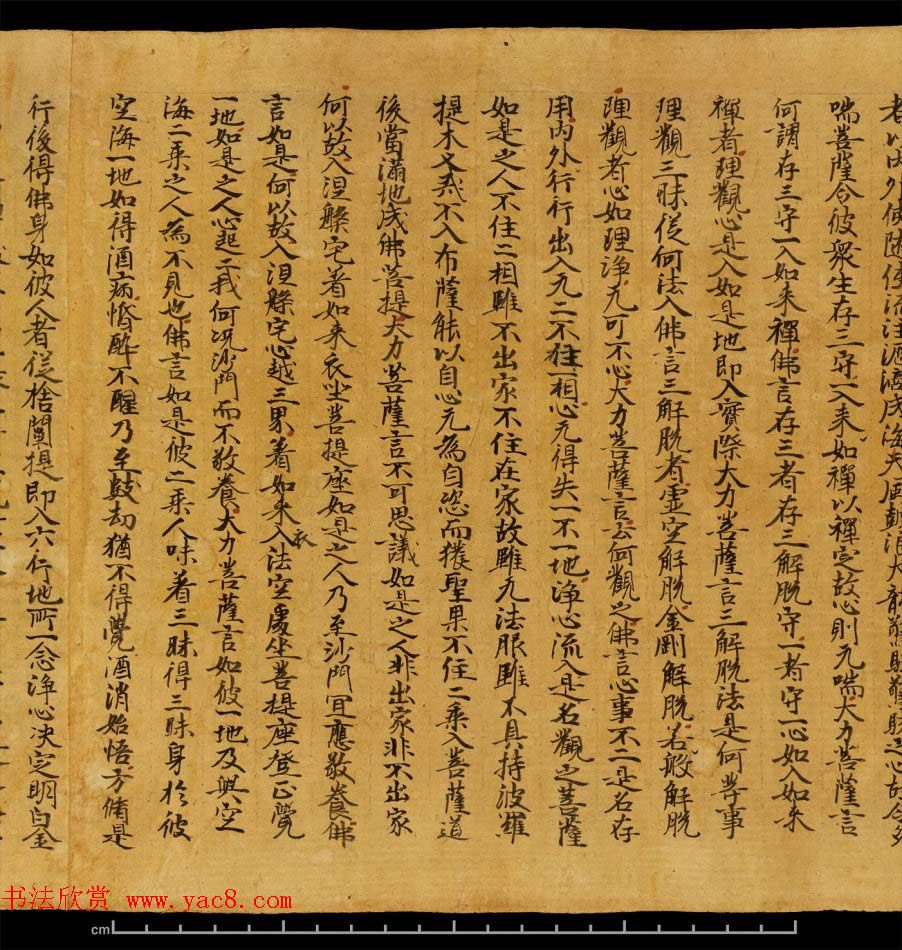 者以内外使隨使流注滴瀝成海天風鼓浪大龍驚駭驚駭之心故令多
喘菩薩令彼衆生存三守一入来如禪以禪定故心則无喘大力菩薩言
何謂存三守一入如来禪佛言存三者存三解脫守一者守一心如入如来
禪者理觀心是入如是地即入實際大力菩薩言三解脫法是何等事
理觀三昧從何法入佛言三解脫者虛空解脫金剛解脫若般解脫
理觀者心如理淨无可不心大力菩薩言云何觀之佛言心事不二是名存
用内外行行出入无二不住一相心无得失一不一地淨心流入是名觀之菩薩
如是之人不住二相雖不出家不住在家故雖无法服雖不具持波羅
提木叉戒不入布薩能以自心无為自恣而獲聖果不住二乘入菩薩道
後當滿地成佛菩提大力菩薩言不可思議如是之人非出家非不出家
何以故入涅槃宅著如来衣坐菩提座如是之人乃至沙門宜應敬養佛
言如是何以故入涅槃宅心越三界着如来衣入法空處坐菩提座登正覺
一地如是之人心超二我何況沙門而不敬養大力菩薩言如彼一地及與空
海二乘之人為不見也佛言如是彼二乘人味着三昧得三昧身於彼
空海一地如得酒病惛醉不醒乃至數劫猶不得覺酒消始悟方脩是
行後得佛身如彼人者從捨闡提即入六行地所一念淨心決定明白金
书法欣赏 www.yac8.com
cm